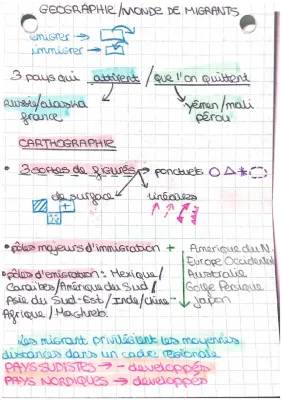 GEOGRAPHIE/MONDE DE MIGRANTS
émigrer →
immigrer →
3 pays qui attirent / que l'on quittent
france
yémen/mali
pérou
CARTHOGRAPHIE
• 3 sortes de figurés → ponctuels
de surface
linéaires
• pôles majeurs d'immigration + Amerique du N.
Europe Occidental
Australie
Golfe Persique
Japon
• pôles d'emigration : Mexique/
Caraïbes/Amérique du Sud/
Asie du Sud-Est/Inde/Chine
Afrique/Maghreb.
Les migrant privilégient les moyennes
distances dans un cadre régionale
PAYS SUDISTES → - developpés
PAYS NORDIQUES → developpés